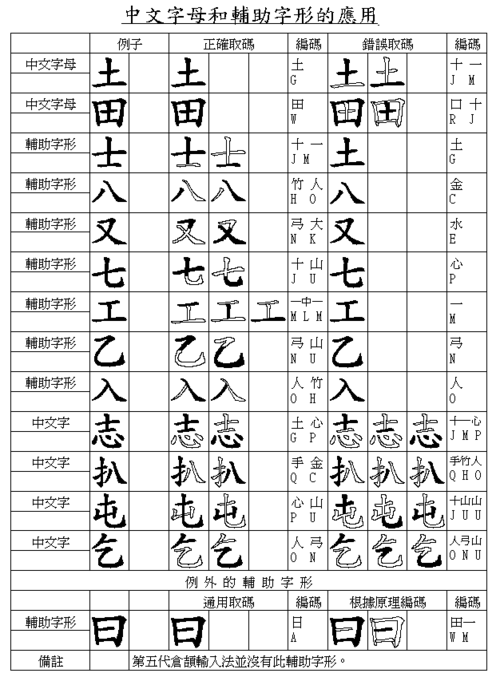 中文字母和輔助字形的應用
例子 正確取碼 編碼 錯誤取碼 編碼
中文字母 土 土 土 土 土 十 一
G J M
中文字母 田 田 田 田 田 口 十
W R J
輔助字形 士 士 士 十 一 土 土
J M G
輔助字形 八 八 八 竹 人 八 金
H O C
輔助字形 又 又 又 弓 大 又 水
N K E
輔助字形 七 七 七 十 山 七 心
J U P
輔助字形 工 工 工 工 一中一 工 一
M L M M
輔助字形 乙 乙 乙 弓 山 乙 弓
N U N
輔助字形 入 入 入 人 竹 入 人
O H O
中文字 志 志 志 土 心 志 志 志 十一心
G P J M P
中文字 扒 扒 扒 手 金 扒 扒 扒 手竹人
Q C Q H O
中文字 屯 屯 屯 心 山 屯 屯 屯 十山山
P U J U U
中文字 乞 乞 乞 人 弓 乞 乞 乞 人弓山
O N O N U
例外的輔助字形
通用取碼 編碼 根據原理編碼 編碼
輔助字形 曰 曰 日 曰 曰 田一
A W M
備註 第五代倉頡輸入法並沒有此輔助字形。